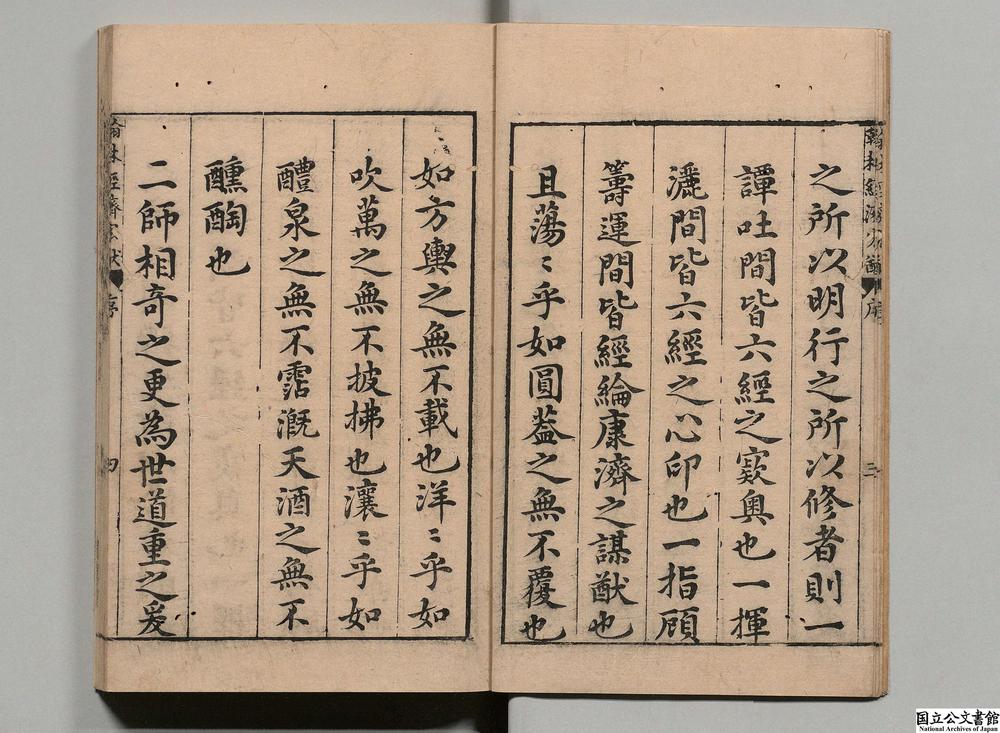 之所以明行之所以修者則一
譚吐間皆六經之窽奧也一揮
灑間皆六經之心印也一指顧
籌運間皆經綸康濟之謀猷也
且蕩〻乎如圓葢之無不覆也
三
如方輿之無不載也洋〻乎如
吹萬之無不披拂也瀼〻乎如
醴泉之無不霑漑天酒之無不
醺酶也
二師相奇之更為世道重之爰
序
四
国立公文書館
National Archives of Japan